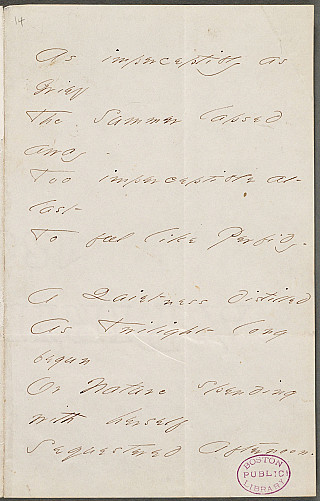 14
As imperceptibly as
Grief
The Summer lapsed
away -
Too imperceptible at
last
To feel like Perfidy.
A Quietness distilled
As Twilight long
begun
Or Nature spending
with herself
Sequestered Afternoon.
BOSTON
PUBLIC
LIBRARY